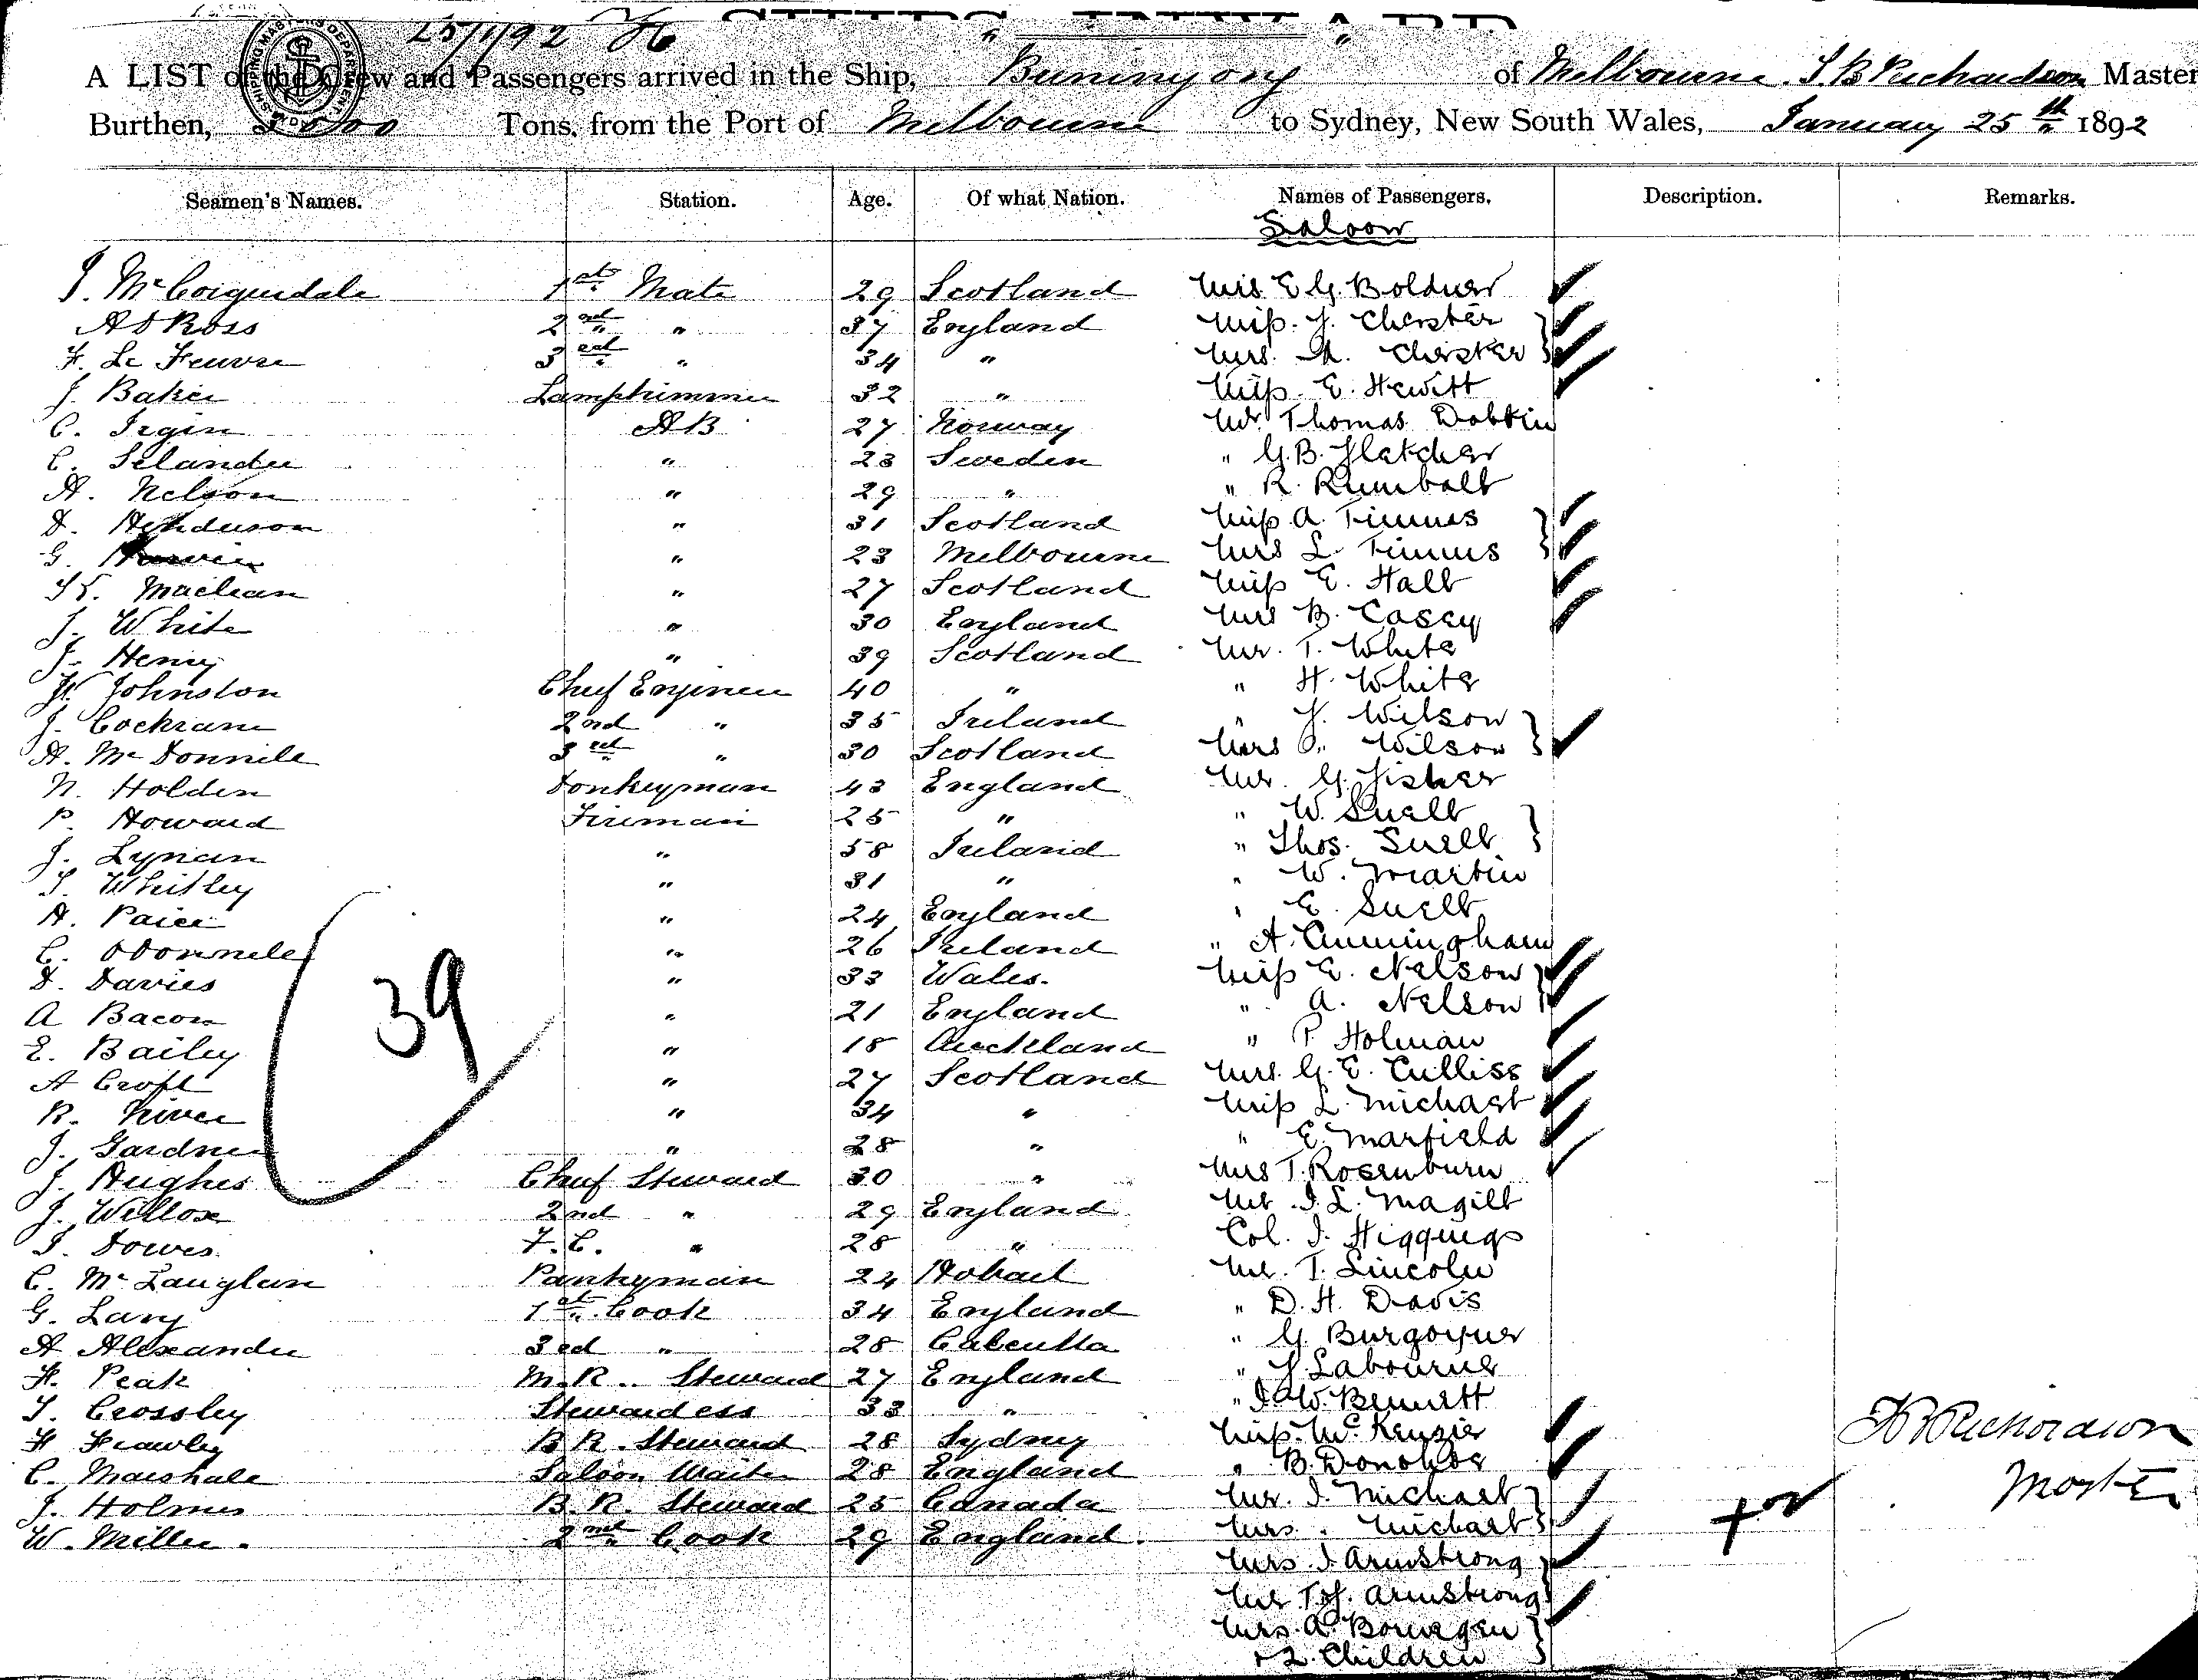 25/1/92
SHIPS INWARD
A LIST of the Crew and Passengers arrived in the Ship, Buninyong of Melbourne. Richardson Master
Burthen, Tons, from the Port of Melbourne to Sydney, New South Wales, January 25th 1892
SHIPPING MASTERS DEPARTMENT
Seamen's Names. Station. Age. Of what Nation. Names of Passengers. Description. Remarks.
Saloon
J. McCorquedale 1st Mate 29 Scotland E G Boldner
A D Ross 2nd " 37 England Miss. J. Chester
F. Le Feuvre 3rd " 34 " Mrs. A. Chester
J. Baker Lamptrimmer 32 " Miss. E. Hewitt
C. AB 27 Norway Mr Thomas Dobbin
C. Selander " 23 Sweden " G. B. Fletcher
A. Nelson " 29 " " R. Rumball
D. Henderson " 31 Scotland Miss A. Timms
G. " 23 Melbourne Mrs L. Timms
Maclean " 27 Scotland Miss E. Hall
J. White " 30 England Mrs B. Casey
J. Henry " 39 Scotland Mr. T. White
W Johnston Chief Engineer 40 " " H. White
J. Cochrane 2nd " 35 Ireland " J. Wilson
A. McDonnell 3rd " 30 Scotland Mrs " Wilson
N. Holden Donkeyman 43 England Mr. G. Fisher
P. Howard Fireman 25 " " W. Snell
J. Lynan " 58 Ireland " Thos. Snell
Whitley " 31 " " W. Martin
A. Paice " 24 England " E. Snell
C. ODonnell " 26 Ireland " A. Cunningham
D. Davies " 33 Wales. Miss E. Nelson
A Bacon " 21 England " A. Nelson
E. Bailey " 18 Auckland " P. Holman
A Croft " 27 Scotland Mrs. G. E. Culliss
R. Niven " 34 " Miss L. Michael
J. Gardner " 28 " " E. Marfield
J. Hughes Chief Steward 30 " Mrs T. Rosenburn
J. Willox 2nd " 29 England Mr J. L. Magill
Dowes F. C. " 28 " Col. J. Higgings
C. McLauglan Pantryman 24 Hobart Mr. T. Lincoln
G. Lary 1st Cook 34 England " D. H. Davis
A Alexander 3rd " 28 Calcutta " G. Burgoyne
F. Peak M. R. Steward 27 England " J. Labourne
Crossley Stewardess 33 " " W. Bennett
F Frawley B R. Steward 28 Sydney Miss. McKenzie
C. Marshall Saloon Waiter 28 England " B. Donohoe
J. Holmes B. R. Steward 25 Canada Mr. J. Michael
W. Miller. 2nd Cook 29 England. Mrs. Michael
Mrs J Armstrong
T. J. Armstrong
Mrs A. Bonwegen
2. Children
39
Richardson
Master